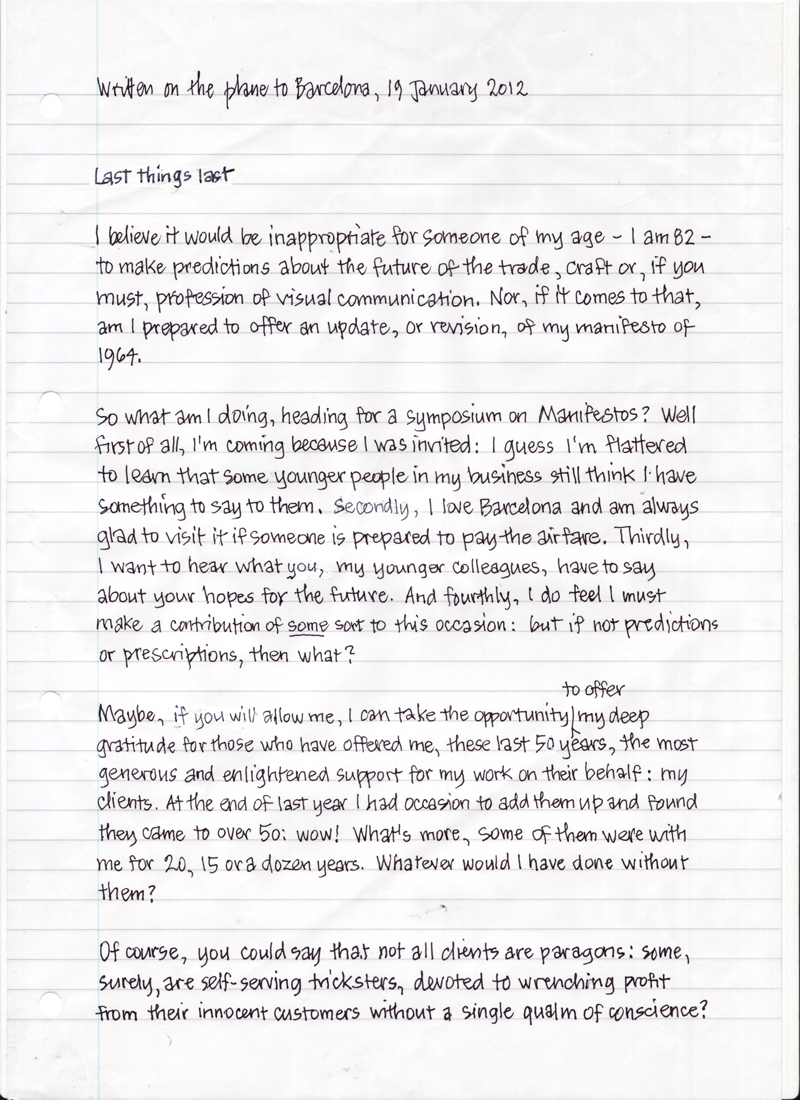 Written on the plane to Barcelona, 19 January 2012
Last things last
I believe it would be inappropriate for someone of my age – I am 82 –
to make predictions about the future of the trade, craft or, if you
must, profession of visual communication. Nor, if it comes to that,
am I prepared to offer an update, or revision, of my manifesto of
1964.
So what am I doing, heading for a symposium on Manifestos? Well
first of all, I'm coming because I was invited: I guess I'm flattered
to learn that some younger people in my business still think I have
something to say to them. Secondly, I love Barcelona and am always
glad to visit it if someone is prepared to pay the airfare. Thirdly,
I want to hear what you, my younger colleagues, have to say
about your hopes for the future. And fourthly, I do feel I must
make a contribution of some sort to this occasion: but if not predictions
or prescriptions, then what?
to offer
Maybe, if you will allow me, I can take the opportunity my deep
gratitude for those who have offered me, these last 50 years, the most
generous and enlightened support for my work on their behalf: my
clients. At the end of last year I had occasion to add them up and found
they came to over 50: wow! What's more, some of them were with
me for 20, 15 or a dozen years. Whatever would I have done without
them?
Of course, you could say that not all clients are paragons: some,
surely, are self-serving tricksters, devoted to wrenching profit
from their innocent customers without a single qualm of conscience?